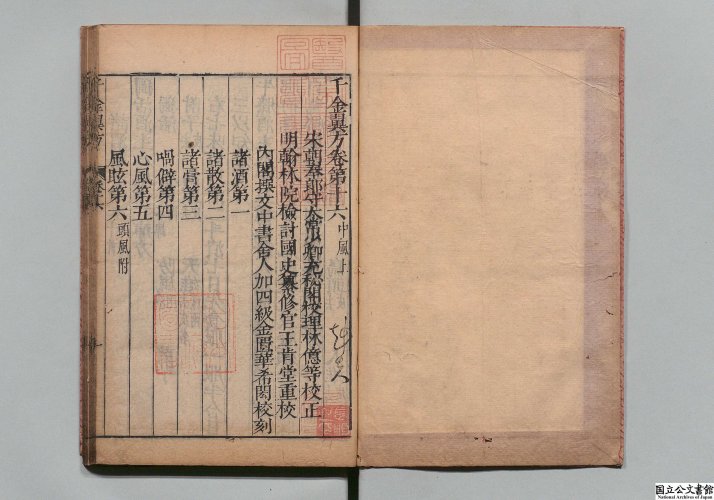 千金翼方卷第十六 中風上
宋朝奉郎守太常少卿充秘閣校理林億等校正
明翰林院檢討國史纂修官王肯堂重校
內閣撰文中書舍人加四級金匱華希閎校刻
諸酒第一
諸散第二
諸膏第三
喎僻第四
心風第五
風眩第六 頭風附
千金翼方
國立公文書館
National Archives of Japan